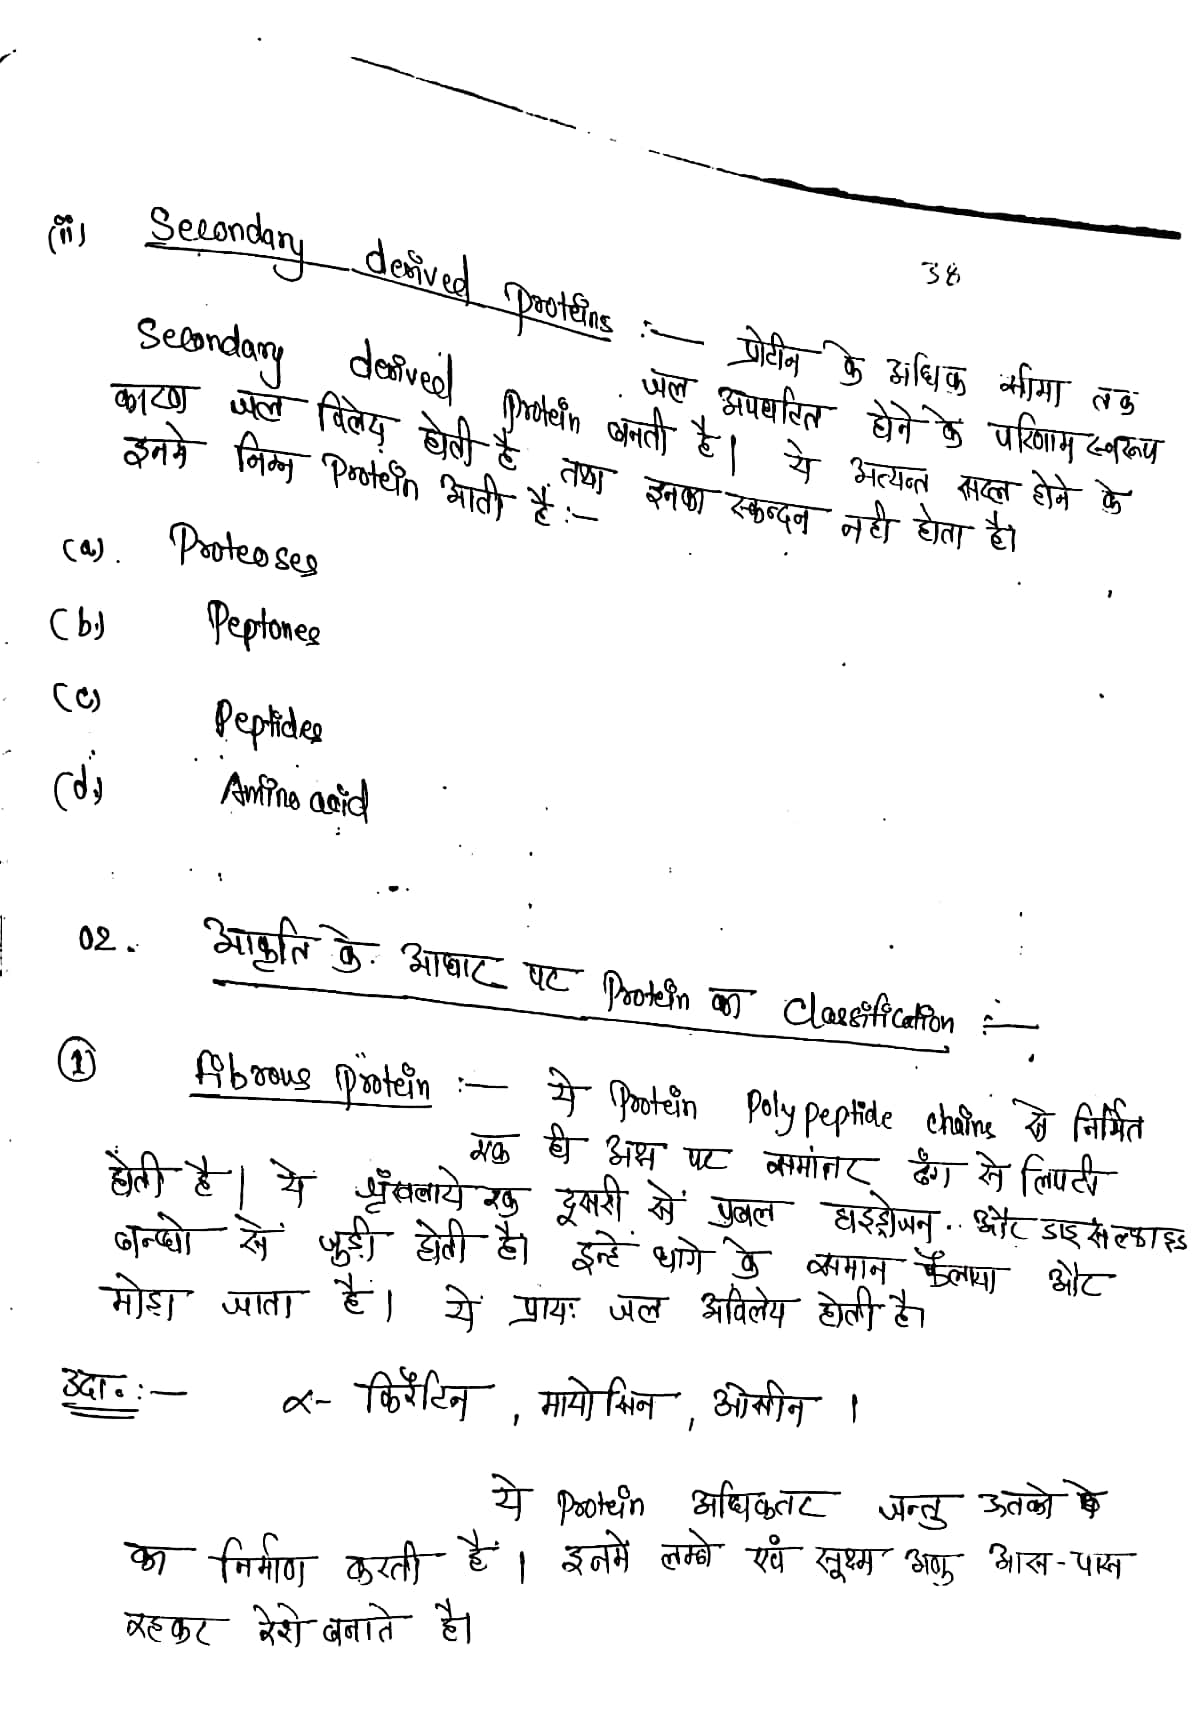 38
(ii) Secondary derived proteins :— प्रोटीन के अधिक सीमा तक
जल अपघटित होने के परिणाम स्वरूप
Secondary derived Protein बनती है। ये अत्यन्त सरल होने के
कारण जल विलेय होती है तथा इनका स्कन्दन नही होता है।
इनमे निम्न Protein आती हैं :-
(a). Proteoses
(b.) Peptones
(c) Peptides
(d.) Amino acid
02. आकृति के आधार पर Protein का Classification :—
(1) fibrous protein :— ये Protein Poly peptide chains से निर्मित
एक ही अक्ष पर समांतर ढंग से लिपटी
होती है। ये श्रृंखलाये एक दूसरी सें प्रबल हाइड्रोजन और डाइ सल्फाइड
बन्धो सें जुड़ी होती है। इन्हें धागे के समान फैलाया और
मोडा जाता है। यें प्रायः जल अविलेय होती है।
उदा. :— α- किरैटिन, मायोसिन, ओसीन ।
ये Protein अधिकतर जन्तु ऊतको के
का निर्माण करती हैं। इनमें लम्बे एवं सूक्ष्म अणु आस-पास
रहकर रेशे बनाते है।